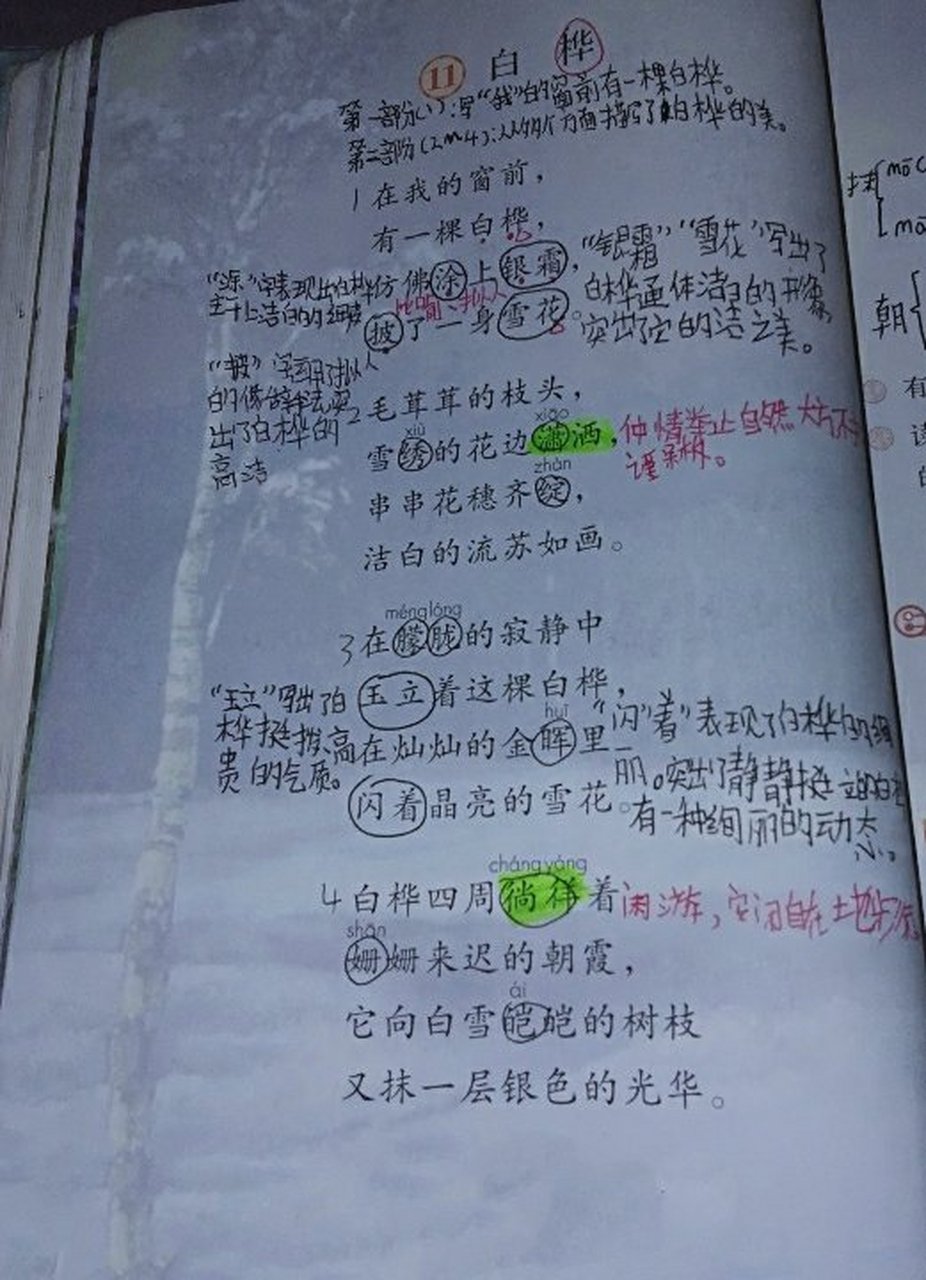 11 白桦
第一部分(1):写“我”的窗前有一棵白桦。
第二部分(2~4):从多个方面描写了白桦的美。
1 在我的窗前，
有一棵白桦，
仿佛涂上银霜，
披了一身雪花。
“银霜”“雪花”写出了
白桦通体洁白的形象，
突出了它的洁之美。
“涂”字表现出白桦
主干上洁白的细腻
比喻 拟人
“披”字运用了拟人
的修辞手法突
出了白桦的
高洁
2 毛茸茸的枝头，
xiù xiāo
雪绣的花边潇洒，
神情举止自然大方不
谨呆板。
zhàn
串串花穗齐绽，
洁白的流苏如画。
méng lóng
3 在朦胧的寂静中
玉立着这棵白桦，
huī
在灿灿的金晖里
闪着晶亮的雪花。
“玉立”写出了白
桦挺拔、高
贵的气质。
“闪”着”表现了白桦的绚
丽。突出了静静挺立的白桦
有一种绚丽的动态
cháng yáng
4 白桦四周徜徉着
闲游，安闲自在土地步
shān
姗姗来迟的朝霞，
ái
它向白雪皑皑的树枝
又抹一层银色的光华。
抹
mō
mā
朝
有
读
的